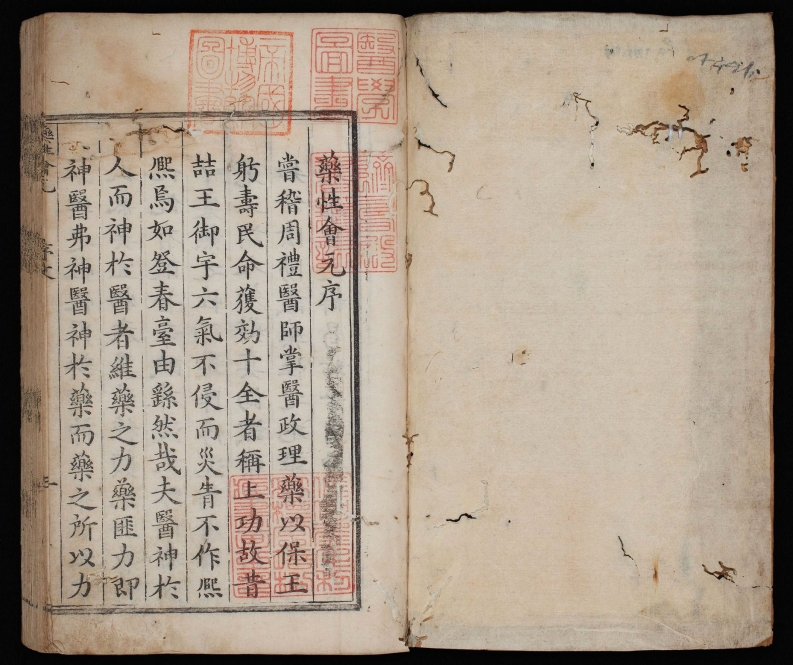 藥性會元序
嘗稽周禮醫師掌醫政理藥以保王
躬壽民命獲効十全者稱上功故昔
喆王御宇六氣不侵而災眚不作熈
熈焉如登春臺由繇然哉夫醫神於
人而神於醫者維藥之力藥匪力即
神醫弗神醫神於藥而藥之所以力
藥性會元
序文
醫學圖書
帝國博物圖書